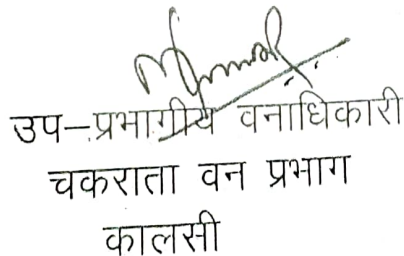 उप–प्रभागीय वनाधिकारी
चकराता वन प्रभाग
कालसी